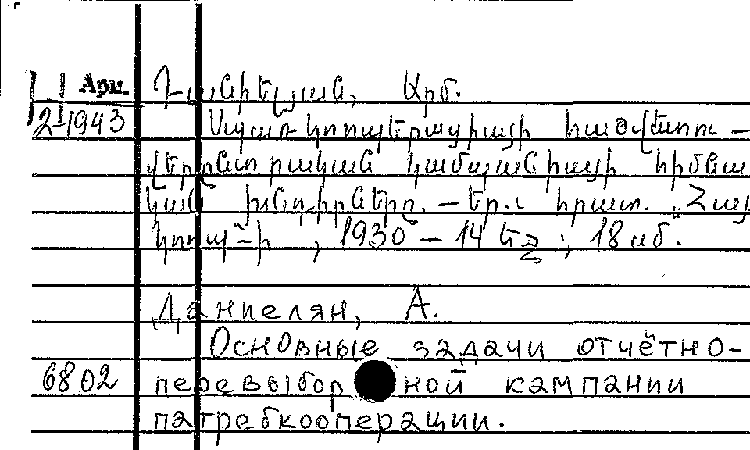 II Арм. Դանիելյան, Արշ.
21943 Սպառ կոոպերացիայի հաշվետու –
վերընտրական կամպանիայի հիմնա
կան խնդիրները. – Եր., հրատ. „Հայ
կոոպ"–ի, 1930 – 14 եջ; 18 սմ.
Даниелян, А.
Основные задачи отчётно-
6802 перевыборной кампании
патребкооперации.